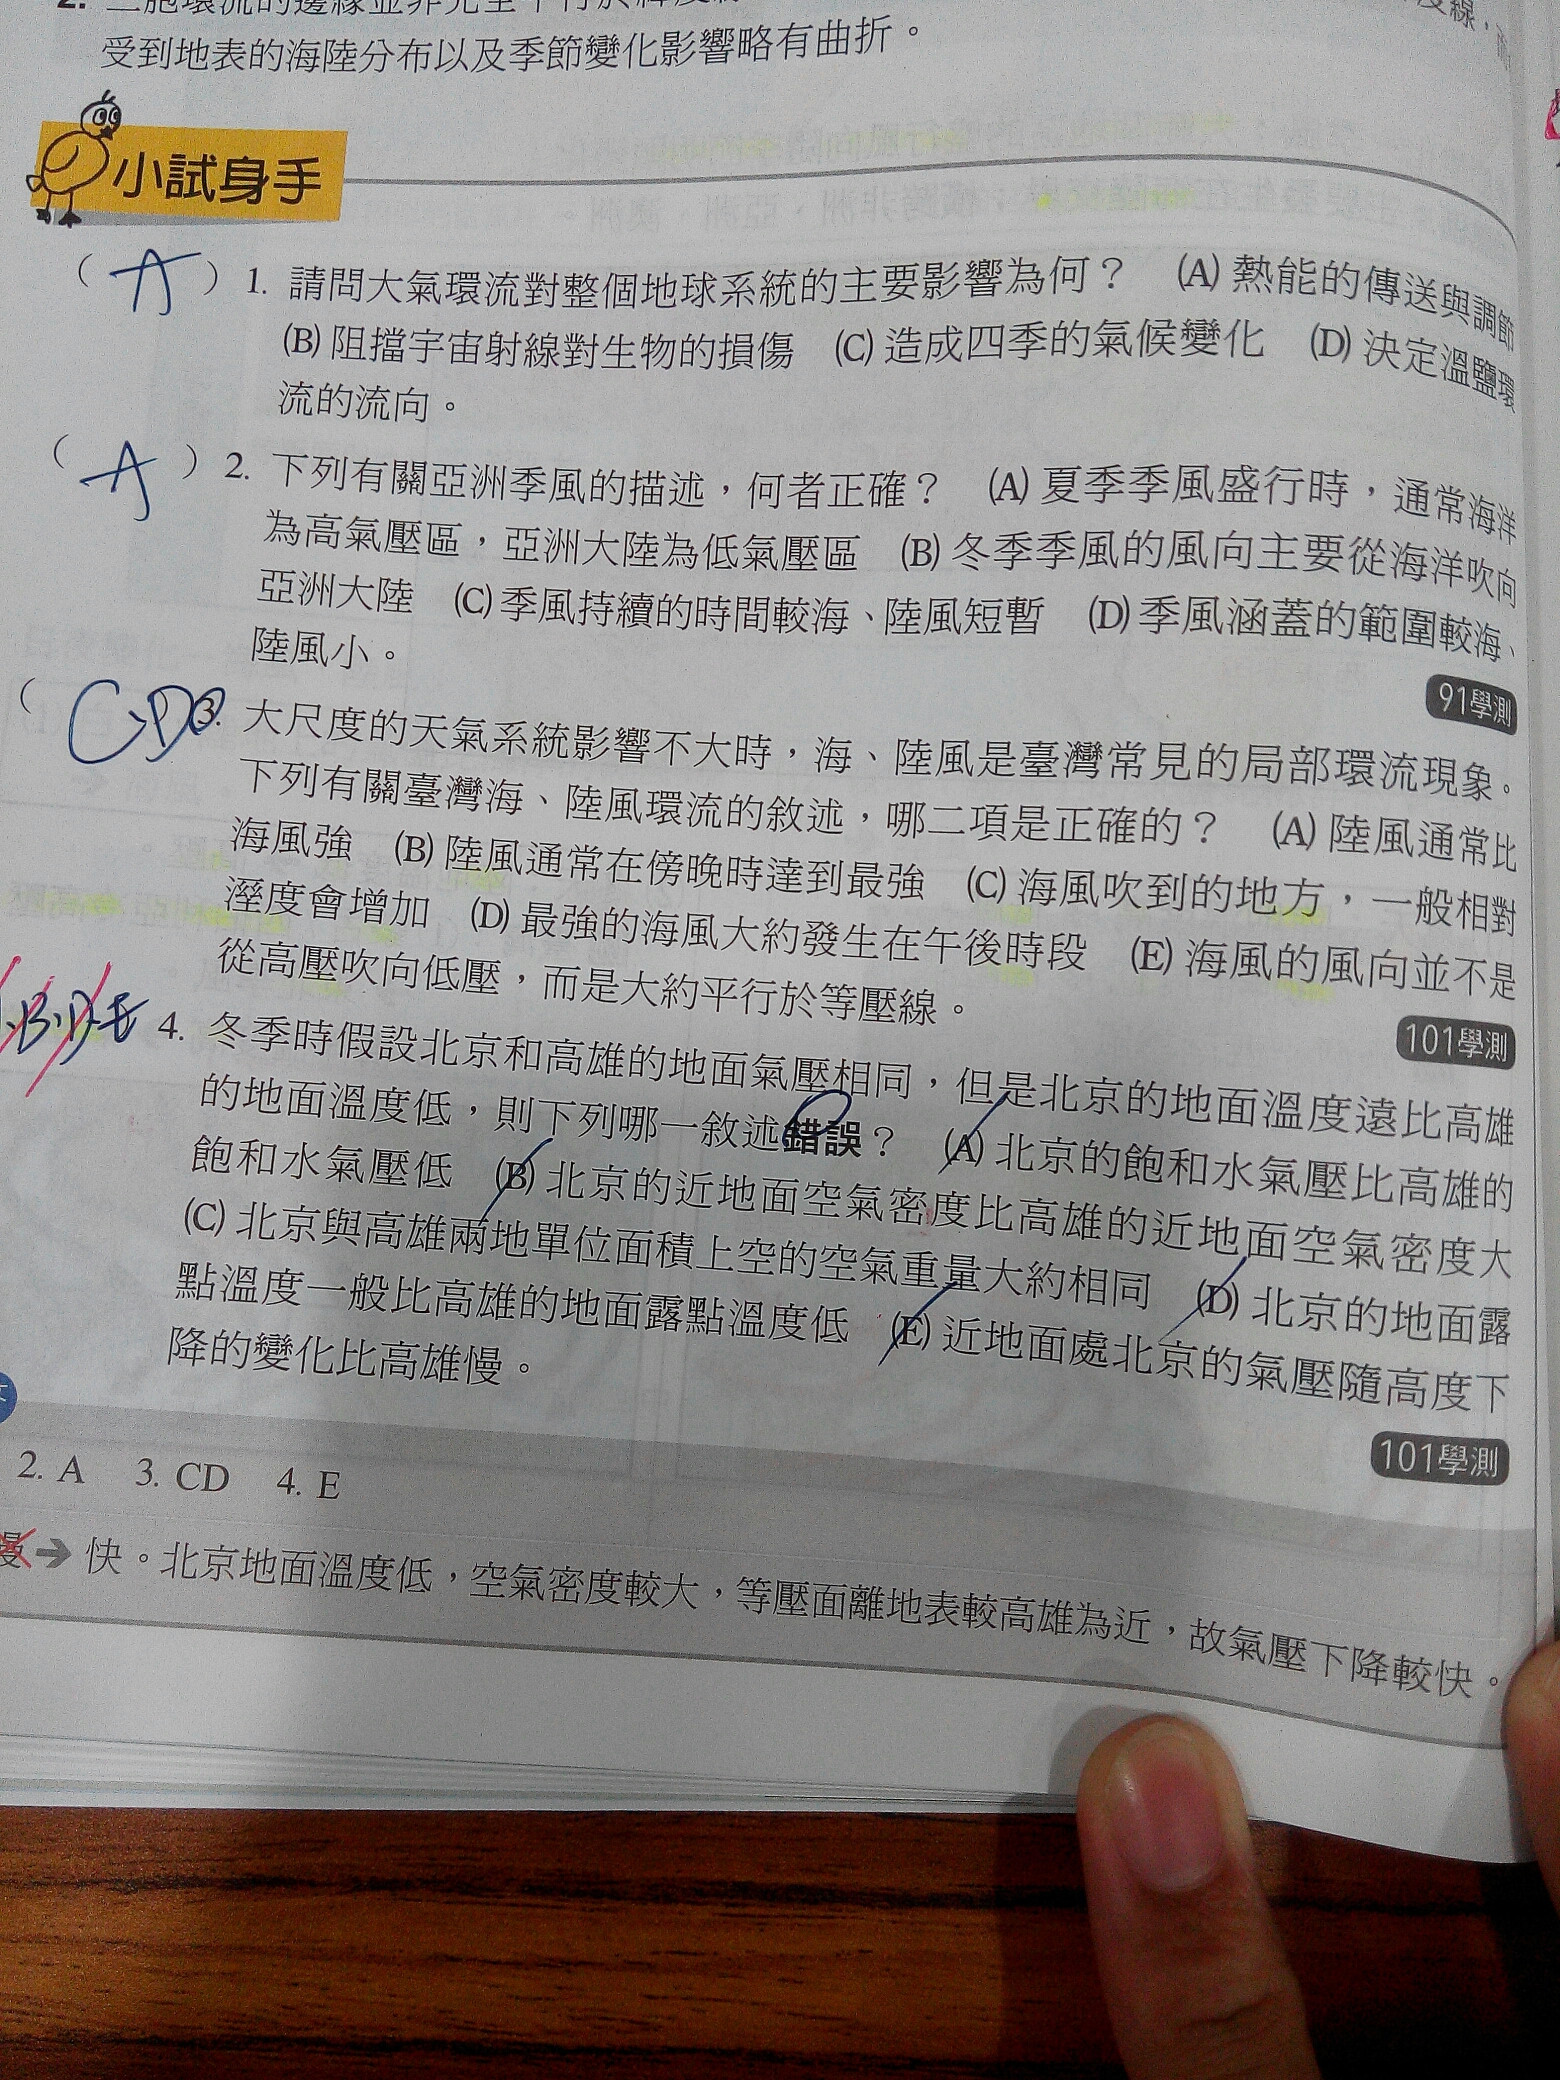 受到地表的海陸分布以及季節變化影響略有曲折。
小試身手
( A ) 1. 請問大氣環流對整個地球系統的主要影響為何？ (A) 熱能的傳送與調節
(B) 阻擋宇宙射線對生物的損傷 (C) 造成四季的氣候變化 (D) 決定溫鹽環
流的流向。
( A ) 2. 下列有關亞洲季風的描述，何者正確？ (A) 夏季季風盛行時，通常海洋
為高氣壓區，亞洲大陸為低氣壓區 (B) 冬季季風的風向主要從海洋吹向
亞洲大陸 (C) 季風持續的時間較海、陸風短暫 (D) 季風涵蓋的範圍較海、
陸風小。
91學測
( CD 3. 大尺度的天氣系統影響不大時，海、陸風是臺灣常見的局部環流現象。
下列有關臺灣海、陸風環流的敘述，哪二項是正確的？ (A) 陸風通常比
海風強 (B) 陸風通常在傍晚時達到最強 (C) 海風吹到的地方，一般相對
溼度會增加 (D) 最強的海風大約發生在午後時段 (E) 海風的風向並不是
從高壓吹向低壓，而是大約平行於等壓線。
101學測
B.D.E 4. 冬季時假設北京和高雄的地面氣壓相同，但是北京的地面溫度遠比高雄
的地面溫度低，則下列哪一敘述錯誤？ (A) 北京的飽和水氣壓比高雄的
飽和水氣壓低 (B) 北京的近地面空氣密度比高雄的近地面空氣密度大
(C) 北京與高雄兩地單位面積上空的空氣重量大約相同 (D) 北京的地面露
點溫度一般比高雄的地面露點溫度低 (E) 近地面處北京的氣壓隨高度下
降的變化比高雄慢。
101學測
2. A 3. CD 4. E
慢→快。北京地面溫度低，空氣密度較大，等壓面離地表較高雄為近，故氣壓下降較快。